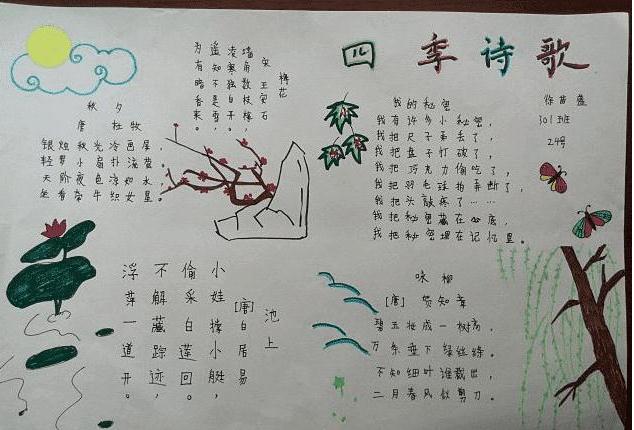 四季诗歌
梅花
宋 王安石
墙角数枝梅,
凌寒独自开。
遥知不是雪,
为有暗香来。
秋夕
唐 杜牧
银烛秋光冷画屏,
轻罗小扇扑流萤。
天阶夜色凉如水,
坐看牵牛织女星。
我的秘密
我有许多小秘密,
我把尺子弄丢了,
我把盘子打破了,
我把巧克力偷吃了,
我把羽毛球拍弄断了,
我把头敲疼了……
我把秘密藏在心底,
我把秘密埋在记忆里。
301班
24号
池上
[唐]白居易
小娃撑小艇,
偷采白莲回。
不解藏踪迹,
浮萍一道开。
咏柳
[唐] 贺知章
碧玉妆成一树高,
万条垂下绿丝绦。
不知细叶谁裁出,
二月春风似剪刀。